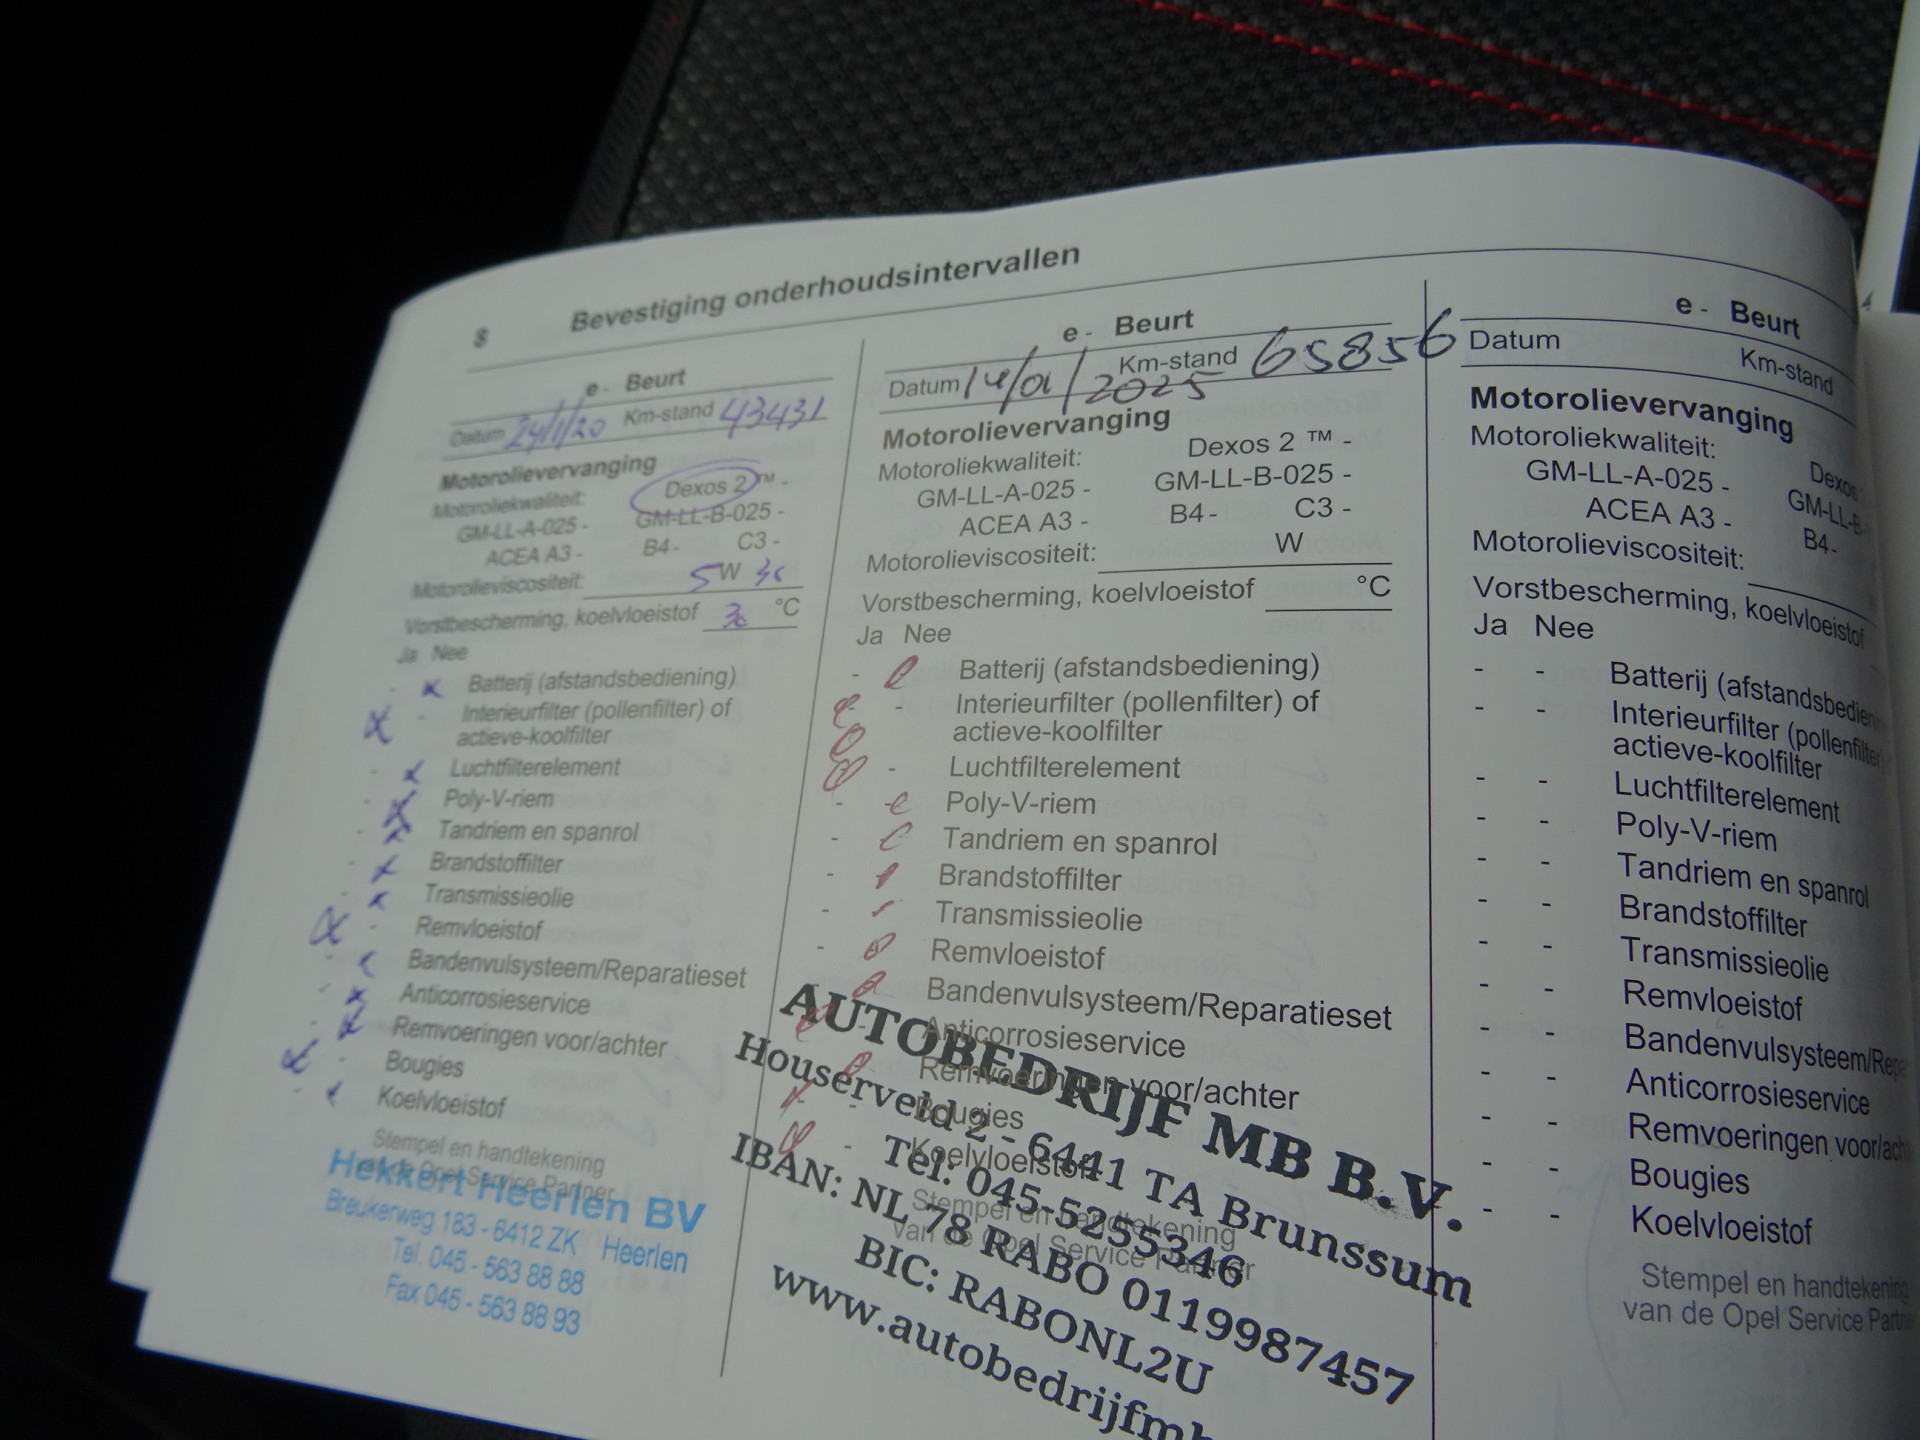 8 Bevestiging onderhoudsintervallen
e - Beurt
Datum 24/1/20 Km-stand 43431
Motorolievervanging
Motoroliekwaliteit: Dexos 2 ™ -
GM-LL-A-025 - GM-LL-B-025 -
ACEA A3 - B4 - C3 -
Motorolieviscositeit: 5 W 30
Vorstbescherming, koelvloeistof 30 °C
Ja Nee
- x Batterij (afstandsbediening)
x - Interieurfilter (pollenfilter) of
actieve-koolfilter
- x Luchtfilterelement
- x Poly-V-riem
- x Tandriem en spanrol
- x Brandstoffilter
- x Transmissieolie
x - Remvloeistof
- x Bandenvulsysteem/Reparatieset
- x Anticorrosieservice
- x Remvoeringen voor/achter
x - Bougies
- x Koelvloeistof
Stempel en handtekening
van de Opel Service Partner
Hekkert Heerlen BV
Breukerweg 183 - 6412 ZK Heerlen
Tel. 045 - 563 88 88
Fax 045 - 563 88 93
e - Beurt
Datum 14/01/2025 Km-stand 65856
Motorolievervanging
Motoroliekwaliteit: Dexos 2 ™ -
GM-LL-A-025 - GM-LL-B-025 -
ACEA A3 - B4 - C3 -
Motorolieviscositeit: W
Vorstbescherming, koelvloeistof °C
Ja Nee
- Batterij (afstandsbediening)
- Interieurfilter (pollenfilter) of
actieve-koolfilter
- Luchtfilterelement
- Poly-V-riem
- Tandriem en spanrol
- Brandstoffilter
- Transmissieolie
- Remvloeistof
Bandenvulsysteem/Reparatieset
Anticorrosieservice
Remvoeringen voor/achter
- Bougies
- Koelvloeistof
Stempel en handtekening
van de Opel Service Partner
AUTOBEDRIJF MB B.V.
Houserveld 2 - 6441 TA Brunssum
Tel: 045-5255346
IBAN: NL 78 RABO 0119987457
BIC: RABONL2U
www.autobedrijfmb
e - Beurt
Datum Km-stand
Motorolievervanging
Motoroliekwaliteit: Dexos
GM-LL-A-025 - GM-LL-B-
ACEA A3 - B4-
Motorolieviscositeit:
Vorstbescherming, koelvloeistof
Ja Nee
- - Batterij (afstandsbedien
- - Interieurfilter (pollenfilter)
actieve-koolfilter
- - Luchtfilterelement
- - Poly-V-riem
- - Tandriem en spanrol
- - Brandstoffilter
- - Transmissieolie
- - Remvloeistof
- - Bandenvulsysteem/Repa
- - Anticorrosieservice
- - Remvoeringen voor/ach
- - Bougies
- - Koelvloeistof
Stempel en handtekening
van de Opel Service Partn